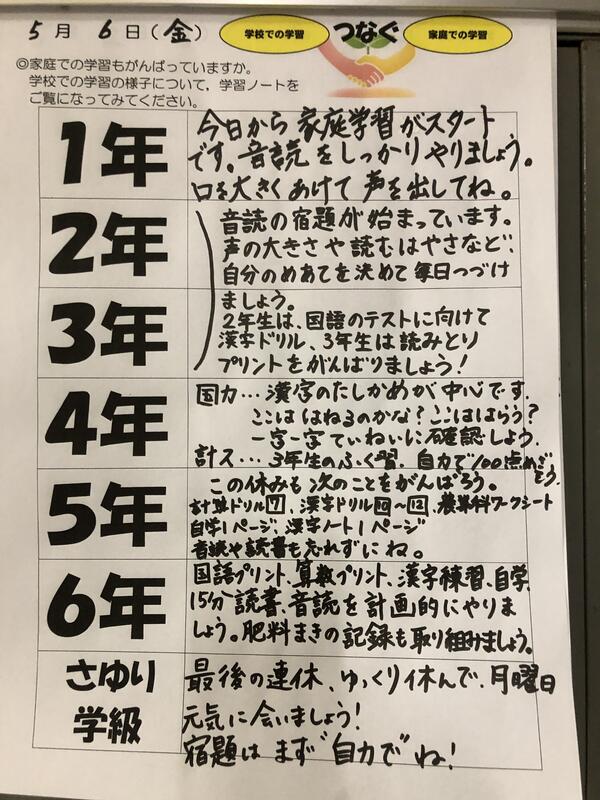 5月 6日(金)
学校での学習
つなぐ
家庭での学習
◎家庭での学習もがんばっていますか。
学校での学習の様子について，学習ノートを
ご覧になってみてください。
1年
今日から家庭学習がスタート
です。音読をしっかりやりましょう。
口を大きくあけて声を出してね。
2年
3年
音読の宿題が始まっています。
声の大きさや読むはやさなど、
自分のめあてを決めて毎日つづけ
ましょう。
2年生は、国語のテストに向けて
漢字ドリル、3年生は読みとり
プリントをがんばりましょう！
4年
国力…漢字のたしかめが中心です。
ここははねるのかな？ここははらう？
一字一字ていねいに確認しよう。
計ス…3年生のふく習。自力で100点めざそう。
5年
この休みも次のことをがんばろう。
計算ドリル7、漢字ドリル10～12、農業科ワークシート
自学1ページ、漢字ノート1ページ
音読や読書も忘れずにね。
6年
国語プリント、算数プリント、漢字練習、自学、
15分読書、音読を計画的にやりま
しょう。肥料まきの記録も取り組みましょう。
さゆり
学級
最後の連休、ゆっくり休んで、月曜日
元気に会いましょう！
宿題はまず"自力で"ね！